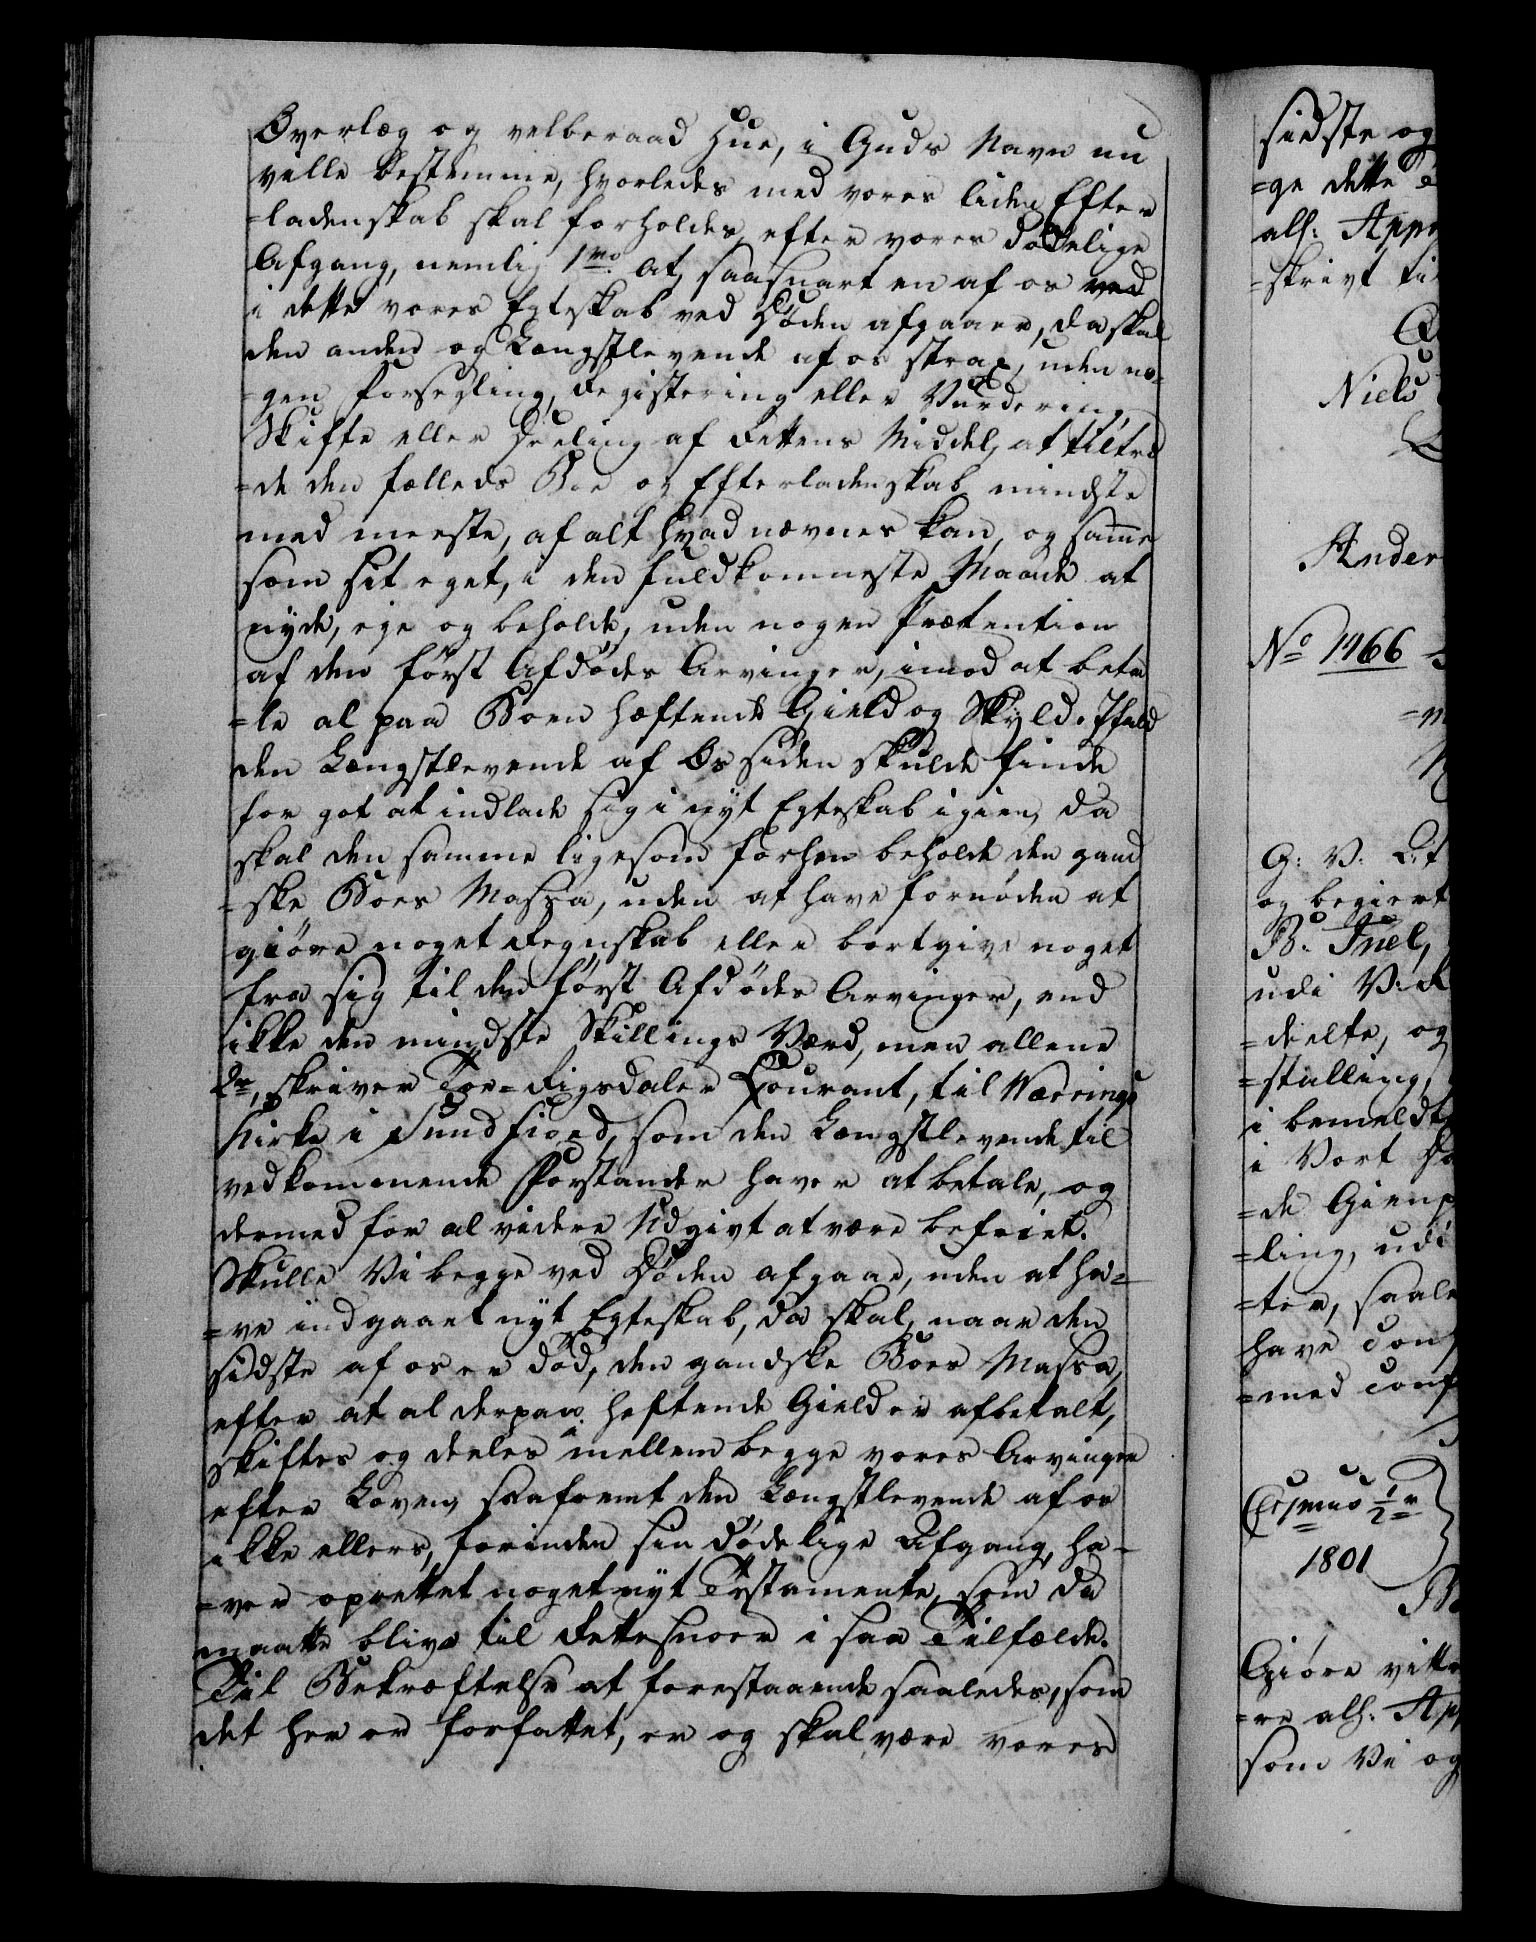 Overlæg og velberaad Hue, i Guds Navn nu
ville bestemme, hvorledes med vores liden Efter
=ladenskab skal forholdes efter vores dødelige
Afgang, nemlig 1mo At, saasnart en af os
i dette vores Egteskab ved Døden afgaaer, da skal
den anden og Længstlevende af os strax, uden no=
=gen Forsegling, Registering eller Vurdering,
Skifte eller Deeling af Rettens Middel, at tiltræ
=de den fælleds Boe og Efterladenskab mindste
med meeste, af alt hvad nævnes kan, og samme
som sit eget, i den fuldkomneste Maade at
nyde, eje og beholde, uden nogen Prætention
af den først Afdødes Arvinger, imod at beta
=le al paa Boen hæftende Gield og Skyld. Ifald
den Længstlevende af Os siden skulde finde
for got at indlade sig i nyt Egteskab igien, da
skal den samme ligesom forhen beholde den gand
=ske Boes Massa, uden at have fornøden at
giøre noget Regnskab eller bortgive noget
fra sig til den først Afdødes Arvinger, end
ikke den mindste Skillings Værd, men allene
2de, skriver Toe Rigsdaler Courant, til Nærrings
Kirke i Sundfiord, som den Længstlevende til
vedkommende Forstander haver at betale, og
dermed for al videre Udgivt at være befriet.
Skulle Vi begge ved Døden afgaae, uden at ha=
=ve indgaaet nyt Egteskab, da skal, naar den
sidste af os er død, den gandske Boes Massa,
efter at al derpaa heftende Gield er afbetalt,
skiftes og deeles mellem begge vores Arvinger
efter Loven, saafremt den Længstlevende af os
ikke ellers, forinden sin dødelige Afgang, ha=
=ver oprettet noget nyt Testamente, som da
maatte blive til Rettesnoer i saa Tilfælde.
Til Bekræftelse at forestaaende saaledes, som
det her er forfattet, er og skal være vores
sidste og
=ge dette
alh: App
=skrivt ti
Niels
Ander
No 1466
G: V:
og begiert
B. Tnel,
udi
=deelte, og
=stalling,
i bemeldte
i Vort
=de Gien
=ling, udi
=ter, saale
have conf
=med conf
1801
Giøre vitte
=re alh: Ap
som Vi og